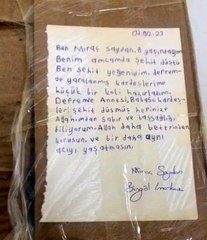 12.02.23
Ben Miraç Saydan, 8 yaşındayım
Benim amcamda şehit düştü
Ben şehit yeğeniyim, deprem-
de yaralanmış kardeşlerime
küçük bir koli hazırladım.
Depremde Annesi, Babası kardeş-
leri şehit düşmüş herkese
Allahımdan sabır ve başsağlığı
diliyorum. Allah daha beterinden
korusun, ve bir daha aynı
acıyı yaşatmasın.
Miraç Saydan